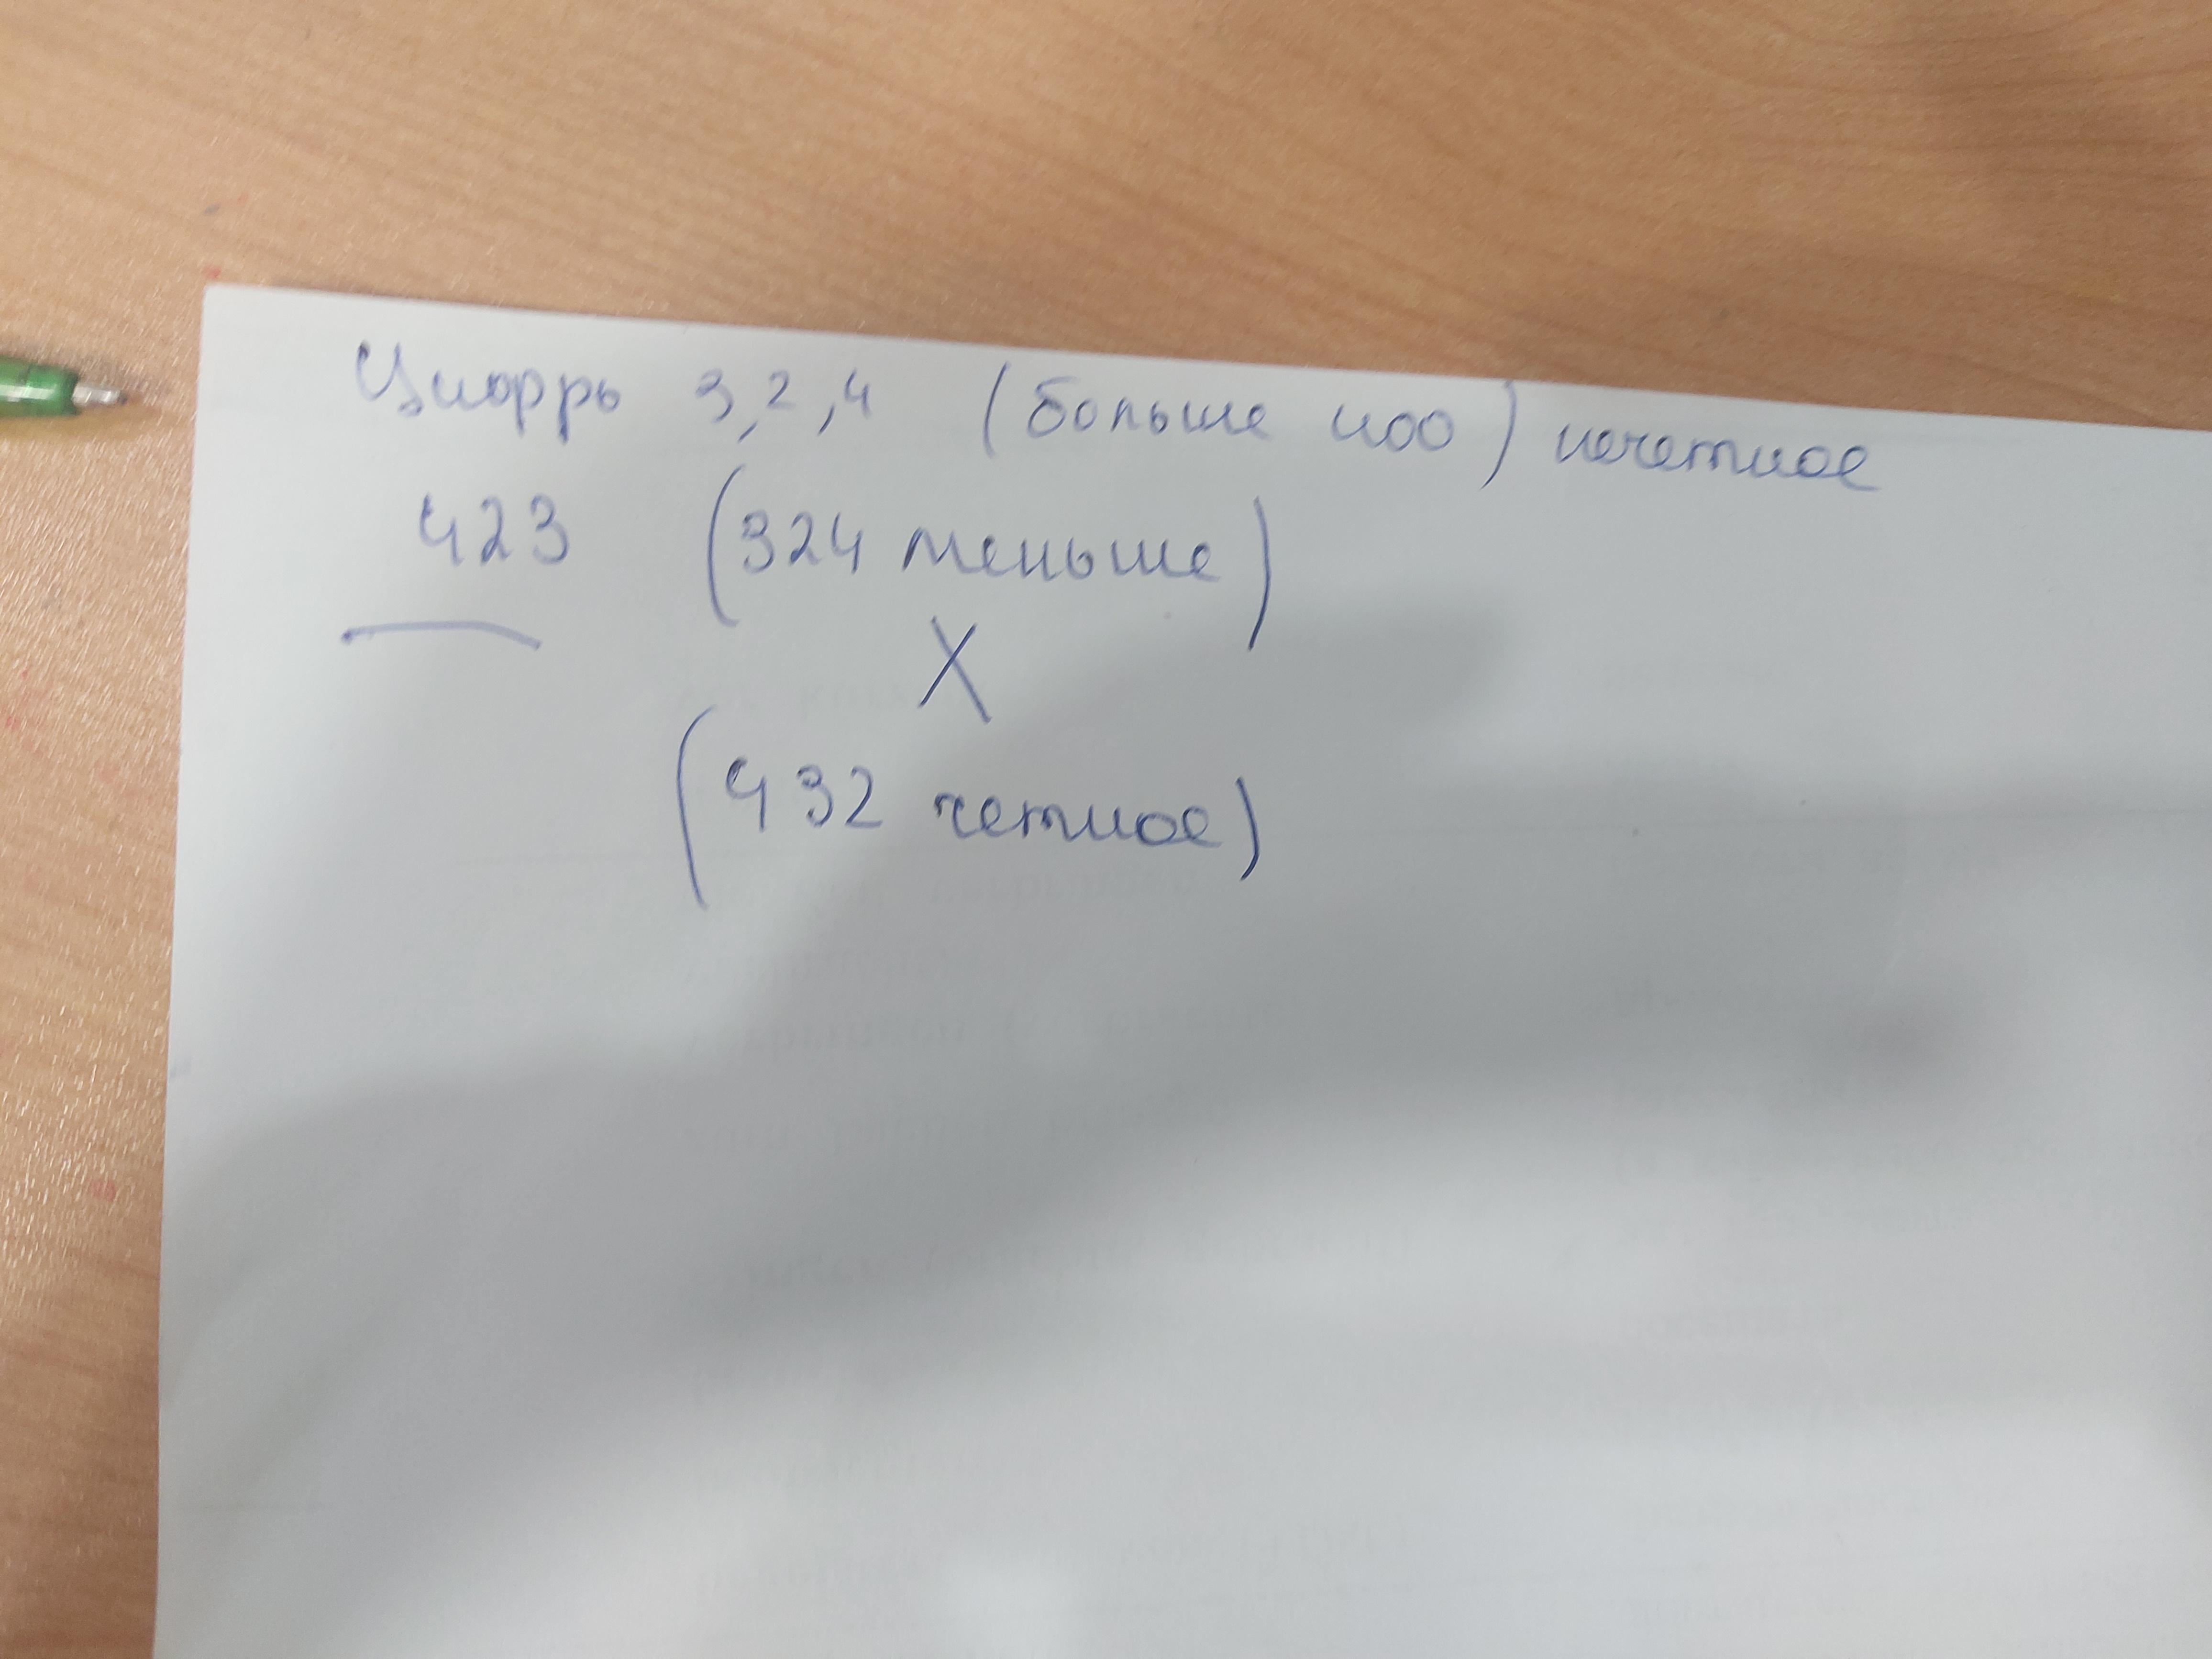 Цифры 3, 2, 4 (больше 400) нечетное
423 (324 меньше)
X
(432 четное)